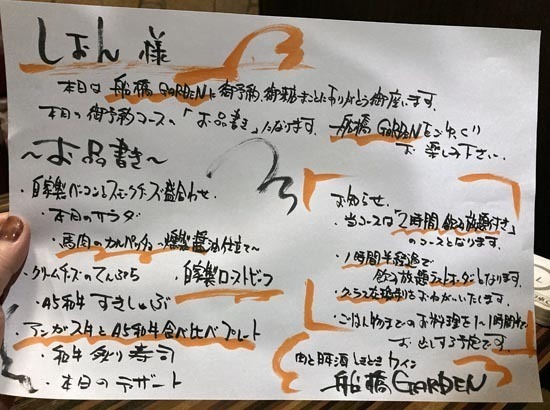 しょん 様
本日は 船橋 GARDENに御予約、御来店まことにありがとう御座います。
本日の御予約コースの「お品書き」になります。船橋 GARDENをごゆっくり
お楽しみ下さい。
〜お品書き〜
・自家製ベーコンとスモークチーズ盛合わせ
・本日のサラダ
・馬肉のカルパッチョ〜燻製醤油仕立て〜
・クリームチーズのてんぷら
・自家製ローストビーフ
・A5和牛すきしゃぶ
・アンガス牛とA5和牛食べ比べプレート
・和牛炙り寿司
・本日のデザート
お知らせ
・当コースは「2時間飲み放題付き」
のコースとなります。
・1時間半経過で
飲み放題ラストオーダーとなります。
・グラス交換制をおねがいいたします。
・ごはん物までのお料理を1〜1時間半で
お出しする予定です。
肉と日本酒 ときどき ワイン
船橋 GARDEN